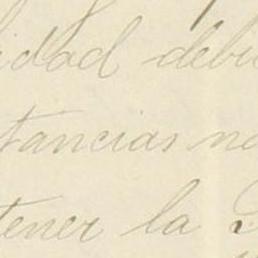 idad debi
tancias no
tener la